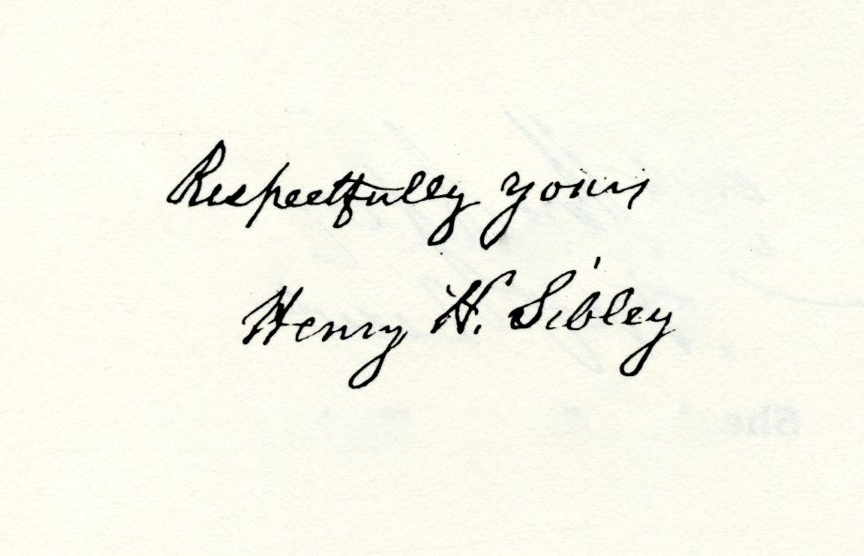 Respectfully yours
Henry H. Sibley